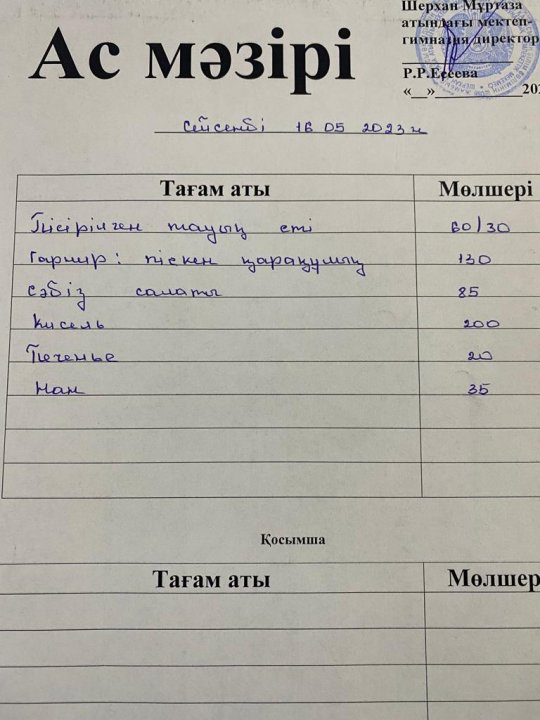 Шерхан Мұртаза
атындағы мектеп-
гимназия директор
Р.Р.Есеева
«__»____________202
Ас мәзірі
Сейсенбі 16 05 2023 ж
Тағам аты Мөлшері
Пісірілген тауық еті 60/30
Гарнир: піскен қарақұмық 130
сәбіз салаты 85
Кисель 200
Печенье 20
Нан 35
Қосымша
Тағам аты Мөлшер